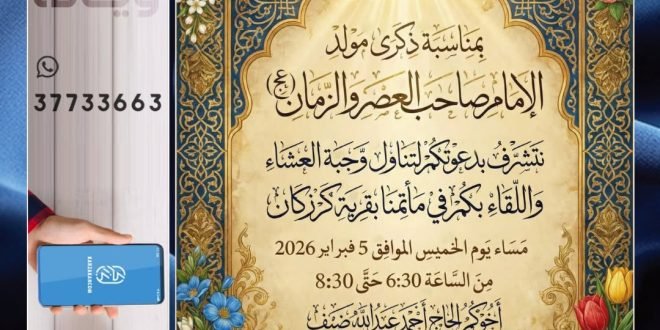 37733663
KARZAKKANCOM
بمناسبة ذكرى مولد
الإمام صاحب العصر والزمان (عج)
نتشرف بدعوتكم لتناول وجبة العشاء
واللقاء بكم في مأتمنا بقرية كرزكان
مساء يوم الخميس الموافق 5 فبراير 2026
من الساعة 6:30 حتى 8:30
أخوكم الحاج أحمد عبدالله ضيف